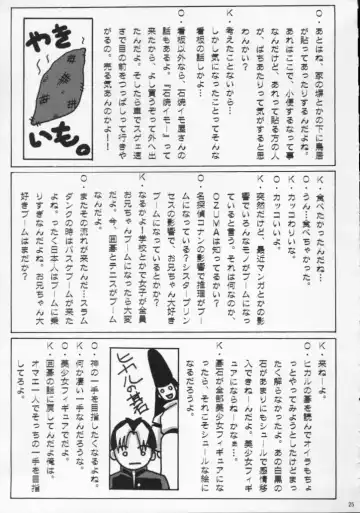 O．あとはね、家の塀とかの下に鳥居
が貼ってあったりするんだよね。
あれはここで、小便するなって事
なんだけど、あれって貼る方の人
が、ばちあたりって気がすると思
わんかい？
K．考えたことないから…
しかし気になったことってそんな
看板の話かよ…
O．看板以外なら、石焼イモ屋さんの
話もあるよ。「石焼イモ～」って
来たから、よし買うぞって外へ出
たんだよ。そしたら車でスゲェ速
さで目の前をつっぱしって行きや
がるの。売る気あんのかよ！
やき
いも。
K．食べたかったんだね…
O．うん…食べちゃかった。
K．カッコわりいな。
O．カッコいいよ。
K．突然だけど、最近マンガとかの影
響でいろんなモノがブームになっ
ていると言う。それは何なのか、
OZUMAは知ってるかい？
O．名探偵コナンの影響で推理がブー
ムになっている？シスタープリン
セスの影響で、お兄ちゃん大好き
ブームになっているとか？
K．なるかよ！学校とかで女子が全員
お兄ちゃんブームになったら大変
だよ。今、囲碁とテニスがブーム
なんだよ。
O．またその流れが来たんだ…スラム
ダンクの時はバスケブームが来た
よね。ったく日本人はブームに乗
りすぎなんだよな。お兄ちゃん大
好きブームはまだか？
K．来ねぇよ。
O．ヒカルの碁を読んでオイラもちょ
っとやってみようとしたけどまっ
たく解らなかったよ。あの白黒の
石があまりにもシュールで感情移
入できねーんだよ。美少女フィギ
ュアにならねーかなぁ…。
K．碁石が全部美少女フィギュアにな
ったら、それこそシュールな絵に
なるだろうよ。
ヒカルの碁
O．神の一手を目指したくなるよね。
K．何か凄い一手なんだろうな。
O．美少女フィギュアでだよ。
K．囲碁の話に戻してんだよ俺は。
オマエ一人でそっちの一手を目指
してろよ。